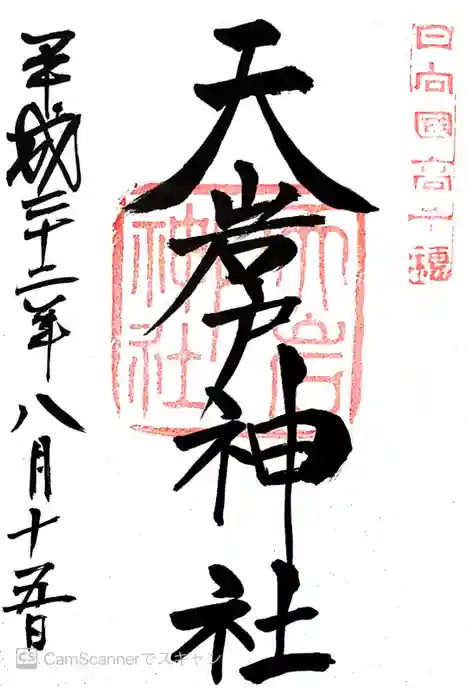 日向國高千穂
天岩戸神社
天岩戸神社
平成二十二年八月十五日
CS CamScannerでスキャン